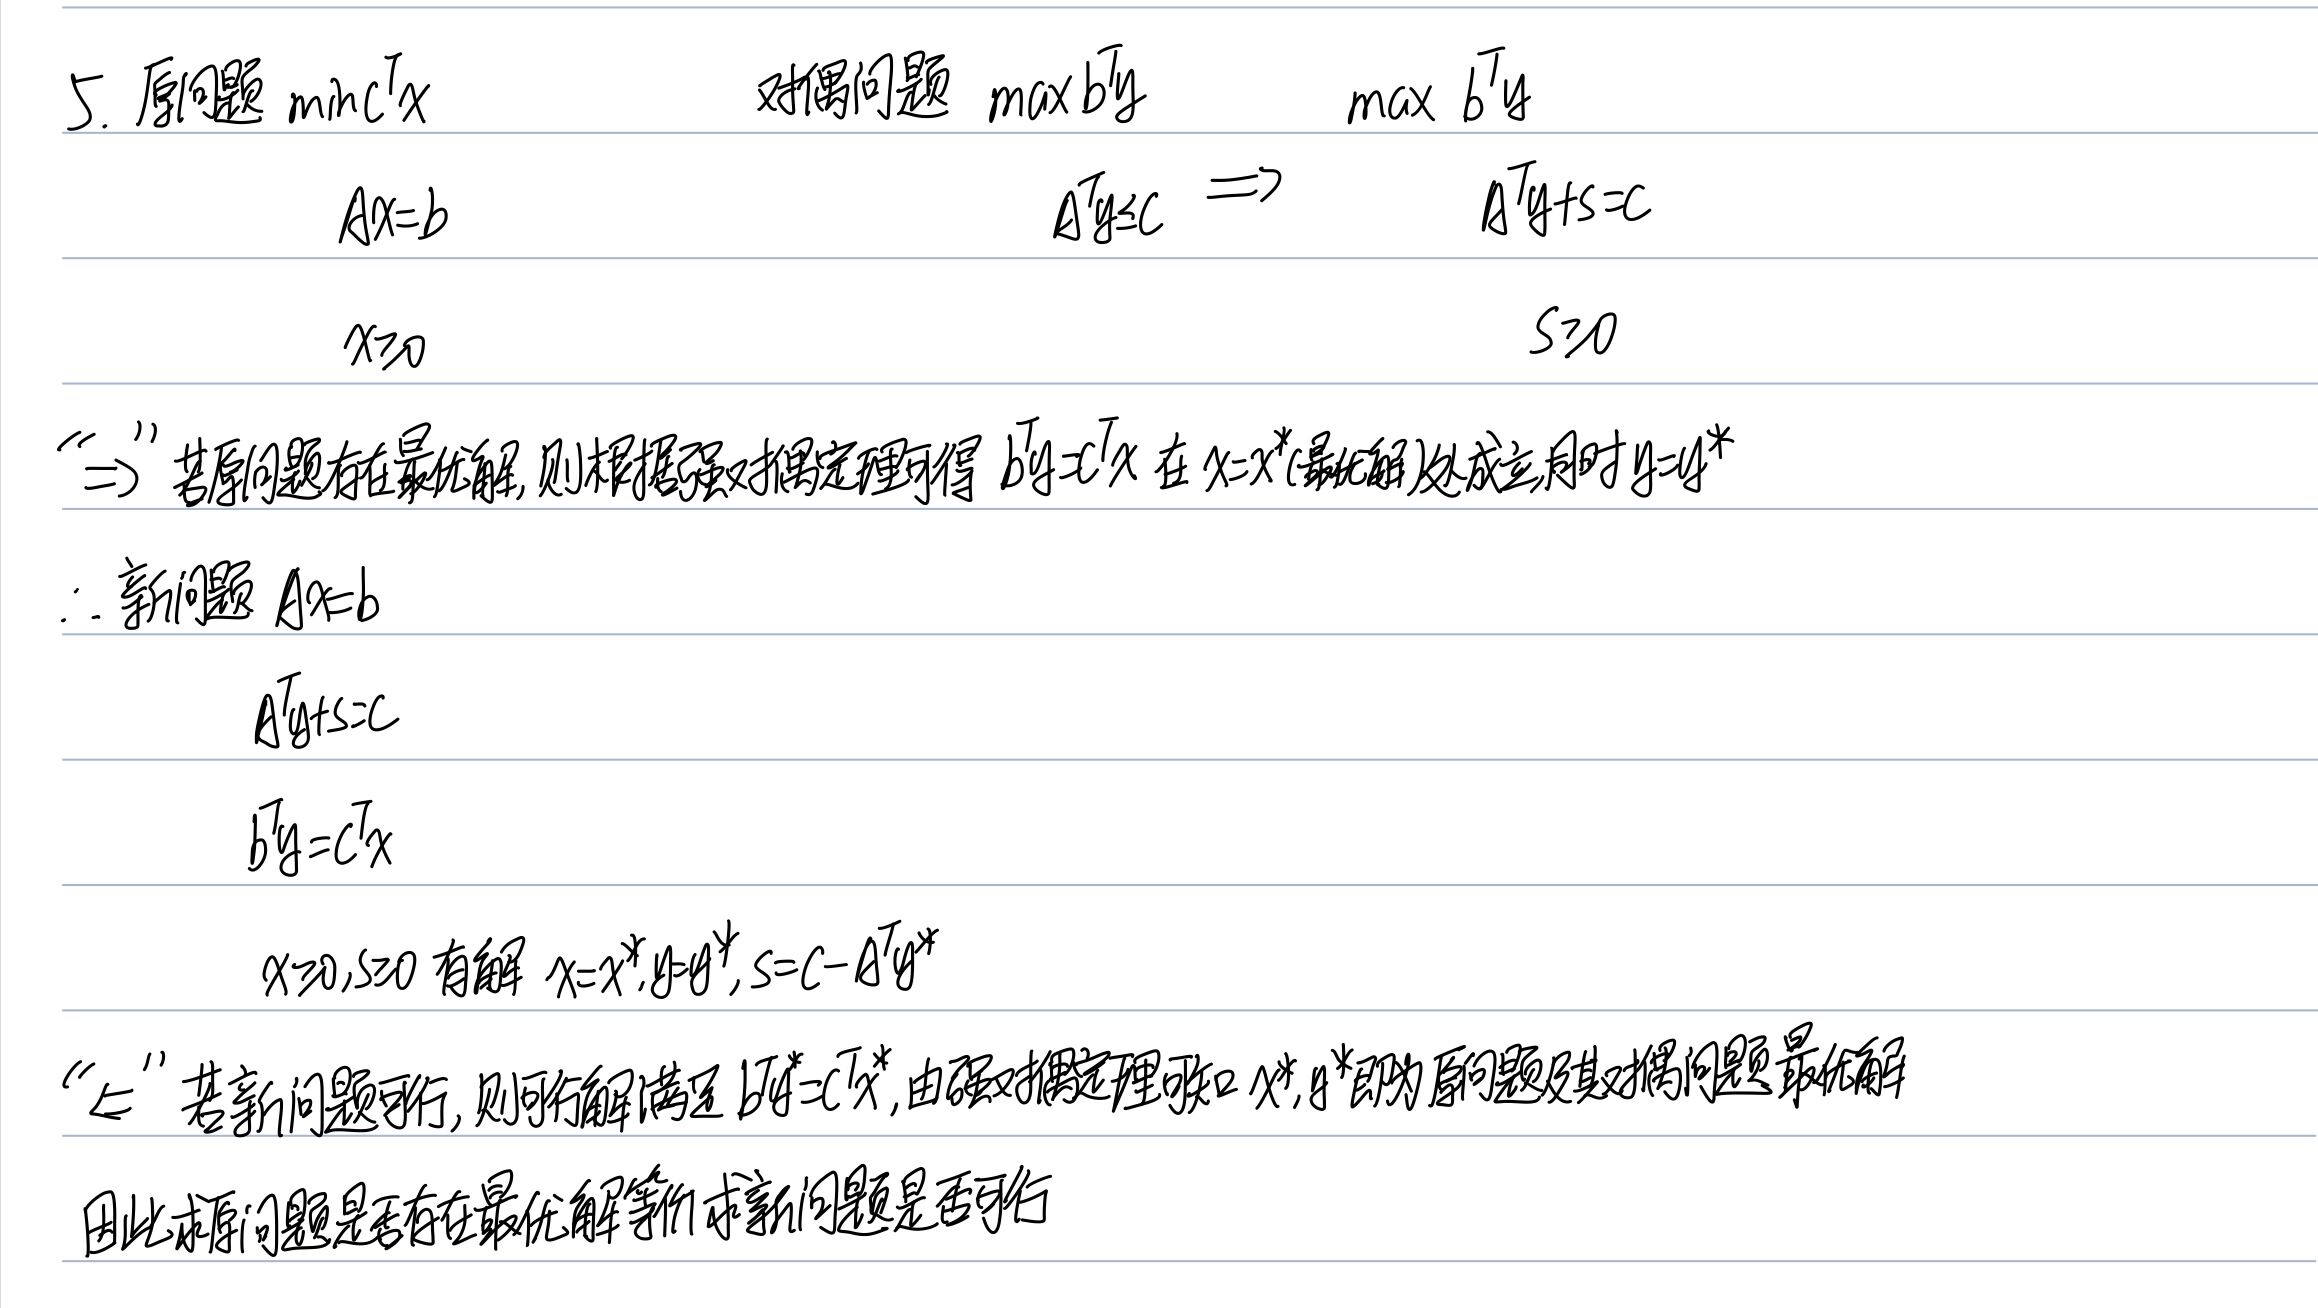 5. 原问题 min cᵀx 对偶问题 max bᵀy max bᵀy
Ax=b Aᵀy≤c ⇒ Aᵀy+s=c
x≥0 s≥0
“⇒” 若原问题存在最优解,则根据强对偶定理可得 bᵀy=cᵀx 在 x=x*(最优解)处成立,同时 y=y*
∴ 新问题 Ax=b
Aᵀy+s=c
bᵀy=cᵀx
x≥0,s≥0 有解 x=x*,y=y*,s=c-Aᵀy*
“⇐” 若新问题可行,则可行解满足 bᵀy*=cᵀx*,由强对偶定理可知 x*,y*即为原问题及其对偶问题最优解
因此求原问题是否存在最优解等价求新问题是否可行